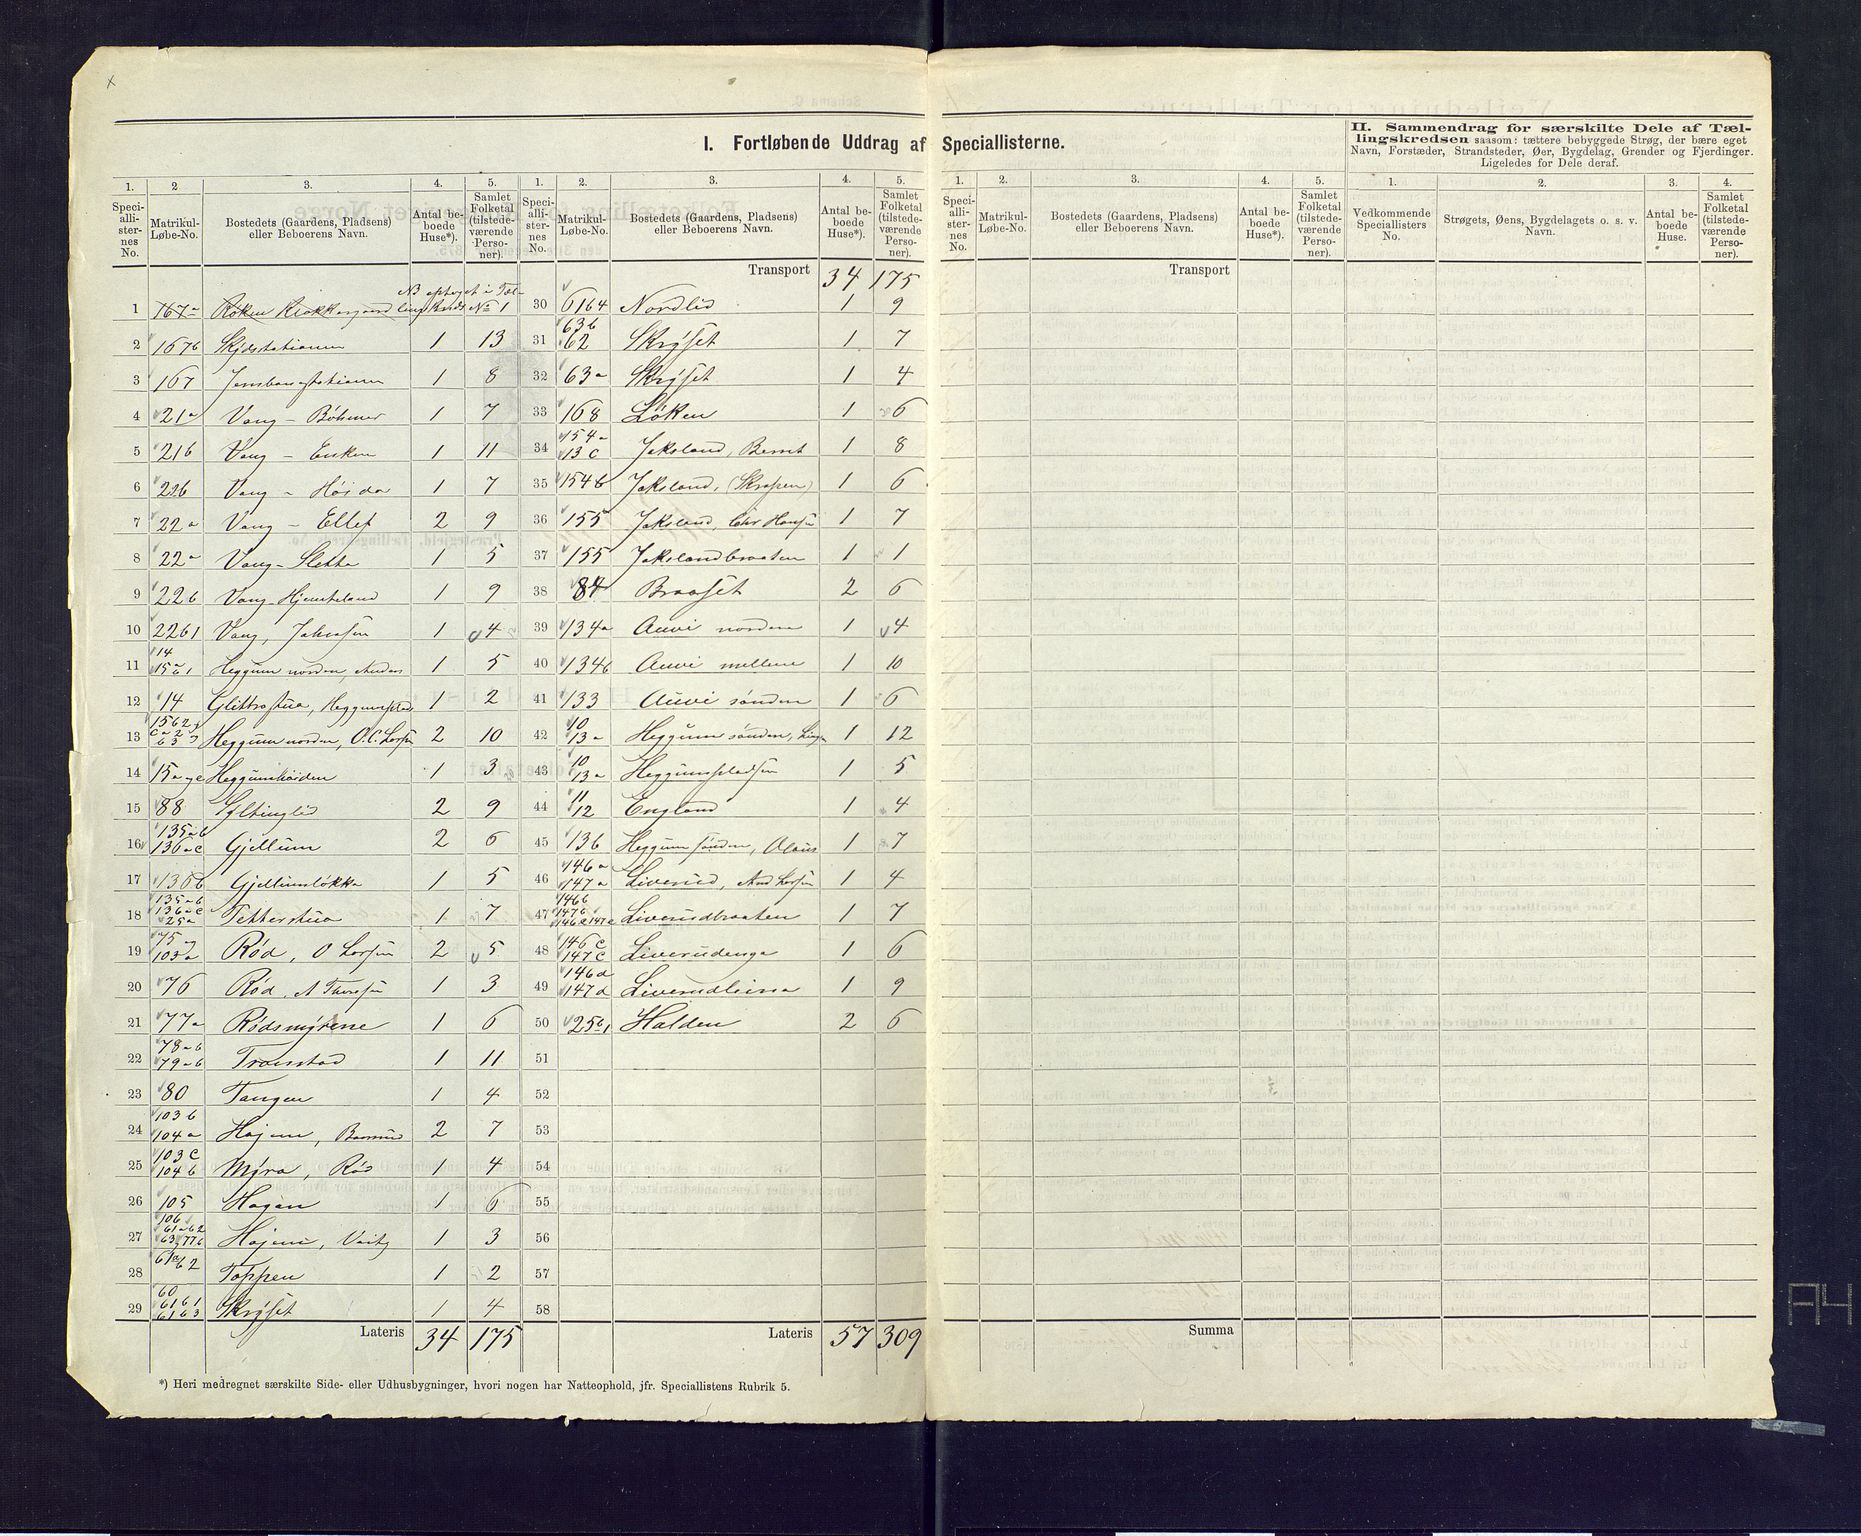 ×
I. Fortløbende Uddrag af Speciallisterne.
II. Sammendrag for særskilte Dele af Tæl-
lingskredsen saasom: tættere bebyggede Strøg, der bære eget
Navn, Forstæder, Strandsteder, Øer, Bygdelag, Grender og Fjerdinger.
Ligeledes for Dele deraf.
1. 2 3. 4. 5. 1. 2. 3. 4. 5. 1. 2. 3. 4. 5. 1. 2. 3. 4.
Speciallisternes No. Matrikul-Løbe-No. Bostedets (Gaardens, Pladsens) eller Beboerens Navn. Antal beboede Huse*). Samlet Folketal (tilstedeværende Personer).
Speciallisternes No. Matrikul-Løbe-No. Bostedets (Gaardens, Pladsens) eller Beboerens Navn. Antal beboede Huse*). Samlet Folketal (tilstedeværende Personer).
Speciallisternes No. Matrikul-Løbe-No. Bostedets (Gaardens, Pladsens) eller Beboerens Navn. Antal beboede Huse*). Samlet Folketal (tilstedeværende Personer).
Vedkommende Speciallisters No. Strøgets, Øens, Bygdelagets o. s. v. Navn. Antal beboede Huse. Samlet Folketal (tilstedeværende Personer).
1 167a Røken Klokkergaard NB optaget i Tællingskreds No 1
2 167b Skydsstationen 1 13
3 167 Jernbanestationen 1 8
4 21a Vang - Böhmer 1 7
5 21b Vang - Eriksen 1 11
6 22b Vang - Höida 1 7
7 22a Vang - Ellef 2 9
8 22a Vang - Sletta 1 5
9 22b Vang - Hjemteland 1 9
10 22b1 Vang, Johnsen 1 4
11 14 15a b1 Heggum norden, Anders 1 5
12 14 Glittrestua, Heggumsplads 1 2
13 15b2 Heggum norden, O.C. Larsen 2 10
14 15a Heggumhøiden 1 3
15 88 Syltinglid 2 9
16 135ab 136ac Gjellum 2 6
17 136b Gjellumsløkka 1 5
18 135ab 136ac 25a Tetterstua 1 7
19 75 103a Rød, O Larsen 2 5
20 76 Rød, A Thoresen 1 3
21 77a Rødsmyrene 1 6
22 78ab 79ab Tronstad 1 11
23 80 Tangen 1 4
24 103b 104a Hajem, 2 7
25 103c 104b Myra, Rød 1 4
26 105 Hagan 1 6
27 106 61ab2 63 77b Hajem, 1 3
28 61a b2 Toppen 1 2
29 60 61b1 61b3 Skryset 1 4
Lateris 34 175
Transport 34 175
30 6164 Nordlid 1 9
31 63b 62 Skryset 1 7
32 63a Skryset 1 4
33 168 Løken 1 6
34 154a 13c Jaksland, Bernt 1 8
35 154b Jaksland, (Skrapen) 1 6
36 155 Jaksland, Chr Hansen 1 7
37 155 Jakslandbraaten 1 1
38 84 Braaset 2 6
39 134a Auvi norden 1 4
40 134b Auvi mellem 1 10
41 133 Auvi sønden 1 6
42 10 13a Heggum sønden, 1 12
43 10 13a Heggumspladsen 1 5
44 11 12 England 1 4
45 13b Heggum sønden, Olaus 1 7
46 146a 147a Liverud, And Larsen 1 4
47 146b 147b Liverudbraaten 1 7
48 146c 147c Liverudenga 1 6
49 146d 147d Liverudleina 1 9
50 25b1 Halden 2 6
51
52
53
54
55
56
57
58
Lateris 57 309
Transport
Summa
*) Heri medregnet særskilte Side- eller Udhusbygninger, hvori nogen har Natteophold, jfr. Speciallistens Rubrik 5.
A4